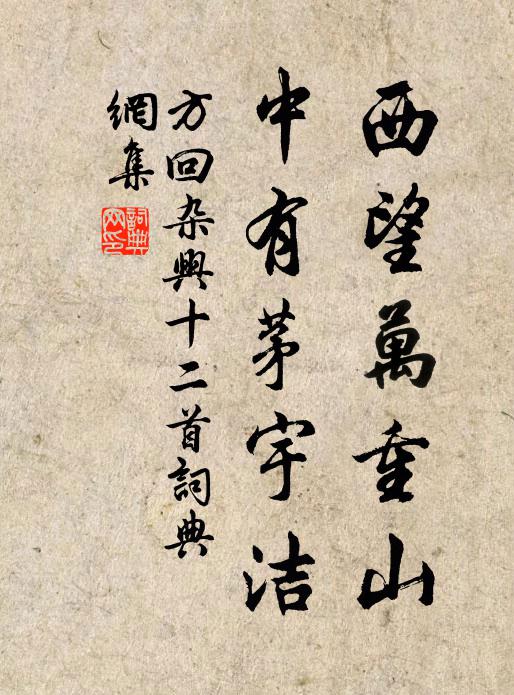 西望萬重山
中有茅宇洁
方回杂興十二首詞典
網集
詞典网印